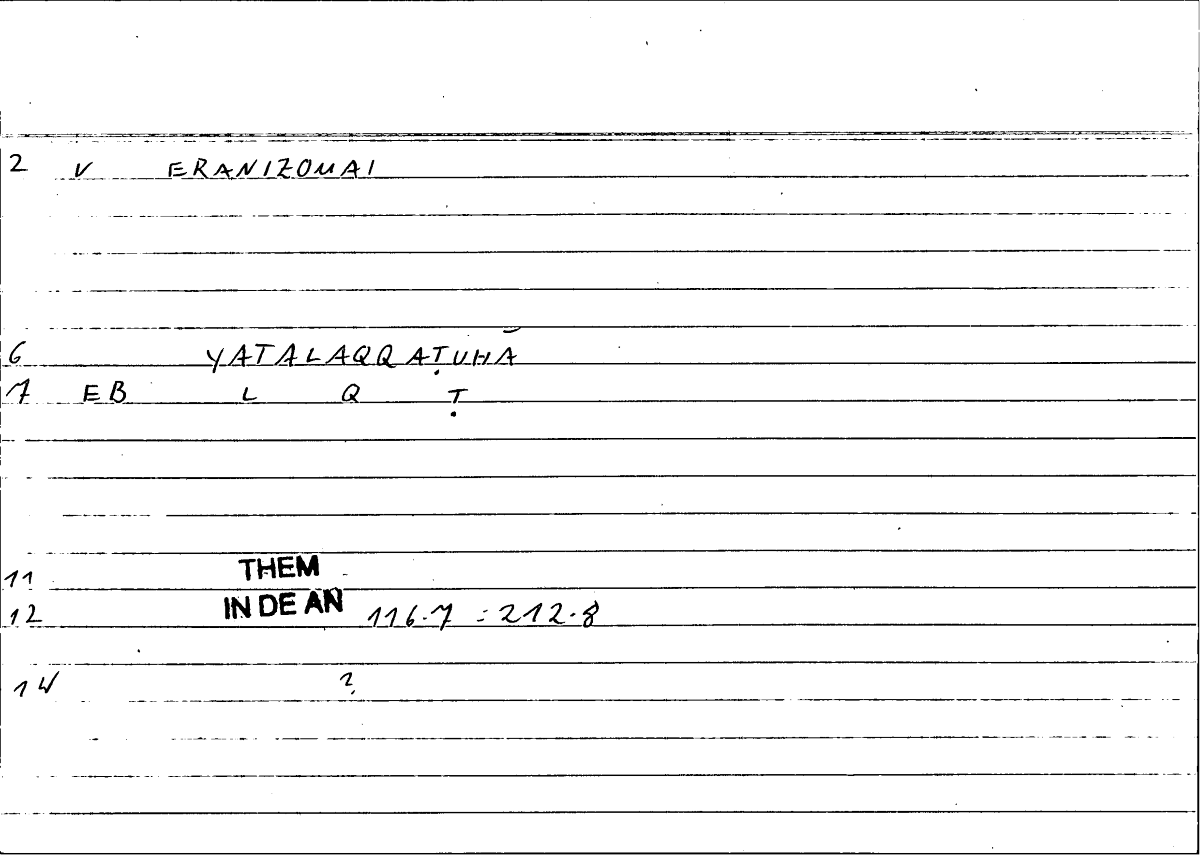 2 V ERANIZOMAI
6 YATALAQQAṬUHĀ
7 EB L Q Ṭ
11 THEM
12 IN DE AN 116.7 : 212.8
14 ?